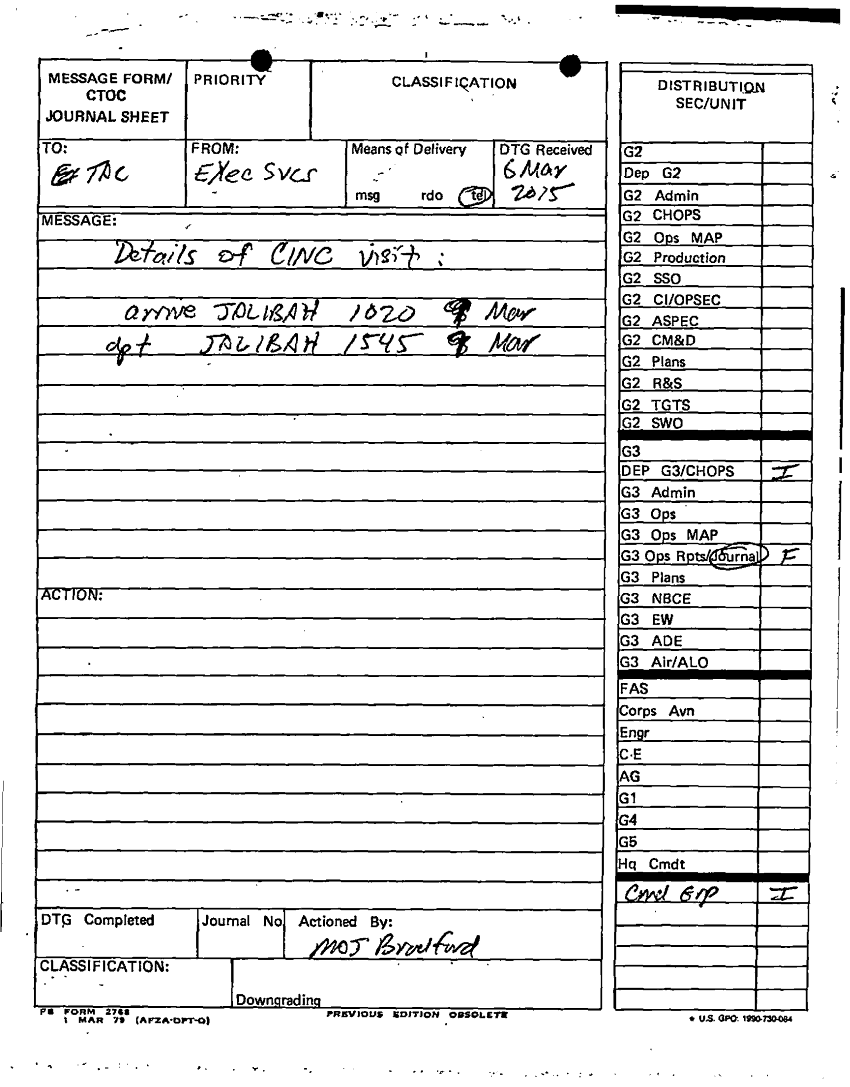 MESSAGE FORM/
CTOC
JOURNAL SHEET
PRIORITY
CLASSIFICATION
TO:
TAC
FROM:
EXec Svcs
Means of Delivery
msg rdo tel
DTG Received
6 Mar
2015
MESSAGE:
Details of CINC visit :
arrive JALIBAH 1020 Mar
dpt JALIBAH 1545 Mar
ACTION:
DTG Completed
Journal No
Actioned By:
MAJ Bradford
CLASSIFICATION:
Downgrading
FORM 2768
1 MAR 79 (AFZA-DPT-O)
PREVIOUS EDITION OBSOLETE
DISTRIBUTION
SEC/UNIT
G2
Dep G2
G2 Admin
G2 CHOPS
G2 Ops MAP
G2 Production
G2 SSO
G2 CI/OPSEC
G2 ASPEC
G2 CM&D
G2 Plans
G2 R&S
G2 TGTS
G2 SWO
G3
DEP G3/CHOPS I
G3 Admin
G3 Ops
G3 Ops MAP
G3 Ops Rpts/Journal F
G3 Plans
G3 NBCE
G3 EW
G3 ADE
G3 Air/ALO
FAS
Corps Avn
Engr
C-E
AG
G1
G4
G5
Hq Cmdt
Cmd Grp I
* U.S. GPO: 1990-730-084